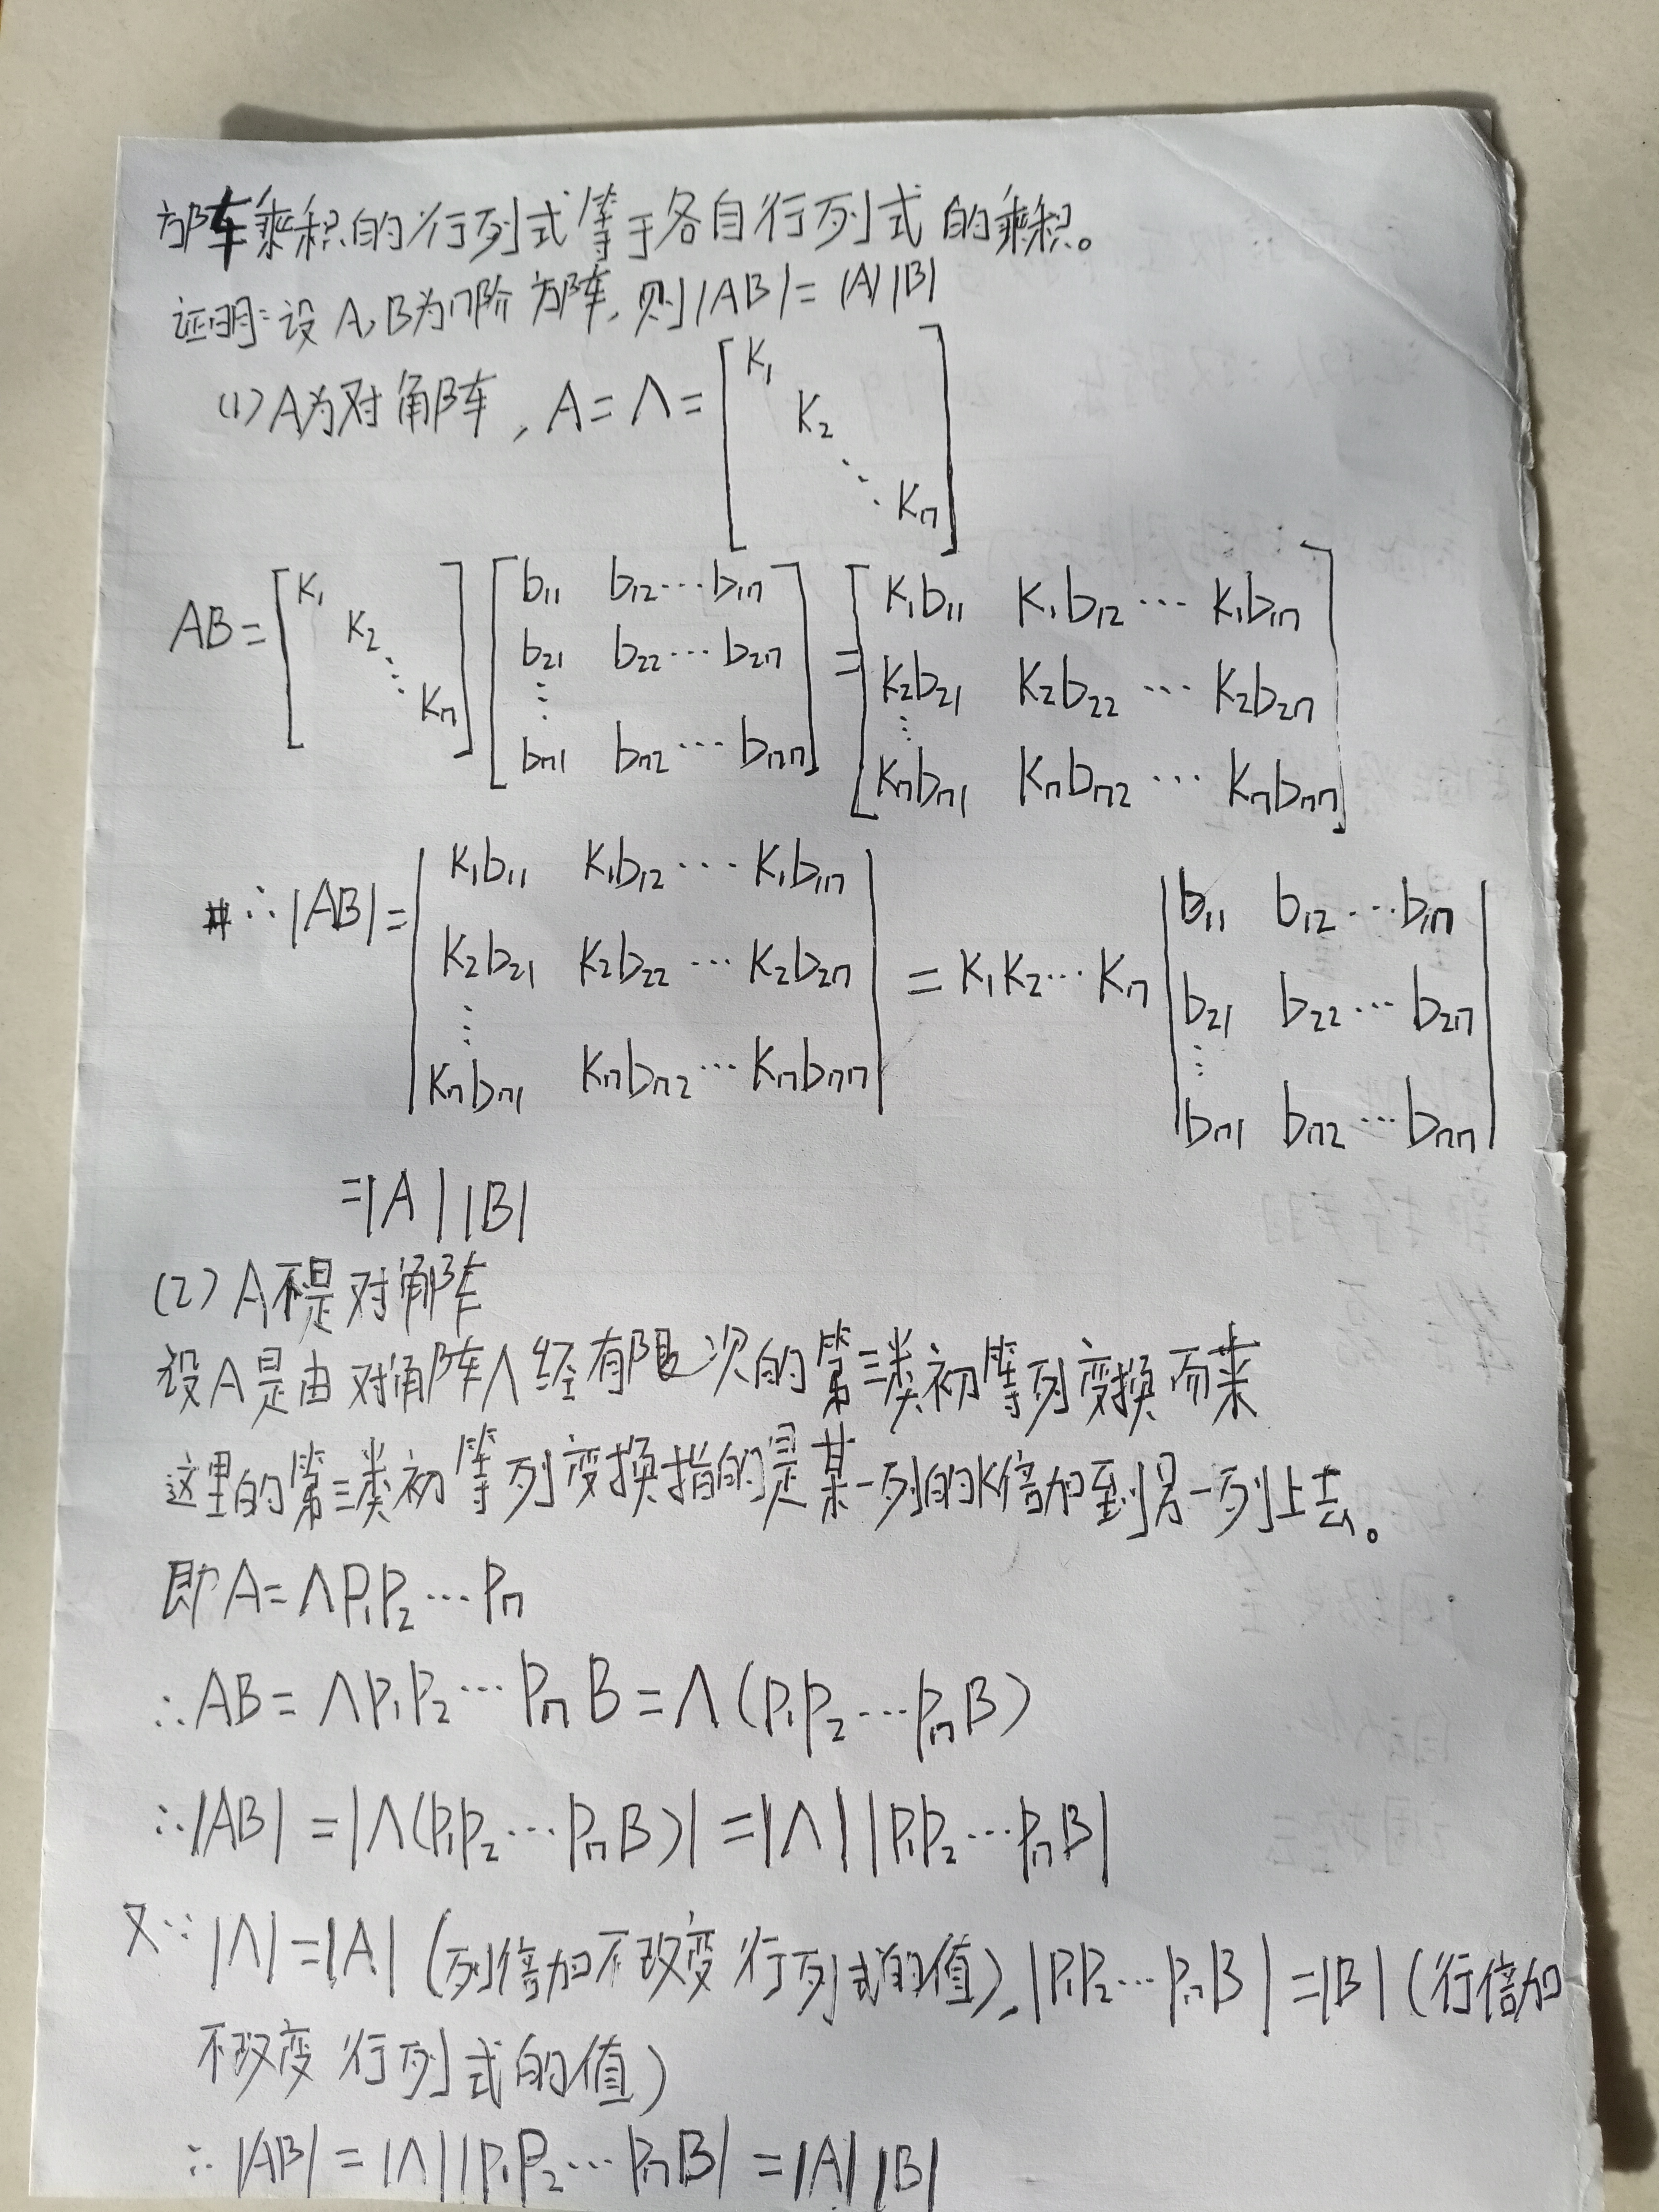 方阵乘积的行列式等于各自行列式的乘积。
证明:设A,B为n阶方阵,则|AB|=|A||B|
(1)A为对角阵,A=Λ=[K₁ K₂ ⋱ Kₙ]
AB=[K₁ K₂ ⋱ Kₙ][b₁₁ b₁₂⋯b₁ₙ b₂₁ b₂₂⋯b₂ₙ ⋮ bₙ₁ bₙ₂⋯bₙₙ]=[K₁b₁₁ K₁b₁₂⋯K₁b₁ₙ K₂b₂₁ K₂b₂₂⋯K₂b₂ₙ ⋮ Kₙbₙ₁ Kₙbₙ₂⋯Kₙbₙₙ]
∴|AB|=|K₁b₁₁ K₁b₁₂⋯K₁b₁ₙ K₂b₂₁ K₂b₂₂⋯K₂b₂ₙ ⋮ Kₙbₙ₁ Kₙbₙ₂⋯Kₙbₙₙ|=K₁K₂⋯Kₙ|b₁₁ b₁₂⋯b₁ₙ b₂₁ b₂₂⋯b₂ₙ ⋮ bₙ₁ bₙ₂⋯bₙₙ|
=|A||B|
(2)A不是对角阵
设A是由对角阵Λ经有限次的第三类初等列变换而来
这里的第三类初等列变换指的是某一列的K倍加到另一列上去。
即A=ΛP₁P₂⋯Pₙ
∴AB=ΛP₁P₂⋯PₙB=Λ(P₁P₂⋯PₙB)
∴|AB|=|Λ(P₁P₂⋯PₙB)|=|Λ||P₁P₂⋯PₙB|
又∵|Λ|=|A|(列倍加不改变行列式的值),|P₁P₂⋯PₙB|=|B|(行倍加
不改变行列式的值)
∴|AB|=|Λ||P₁P₂⋯PₙB|=|A||B|